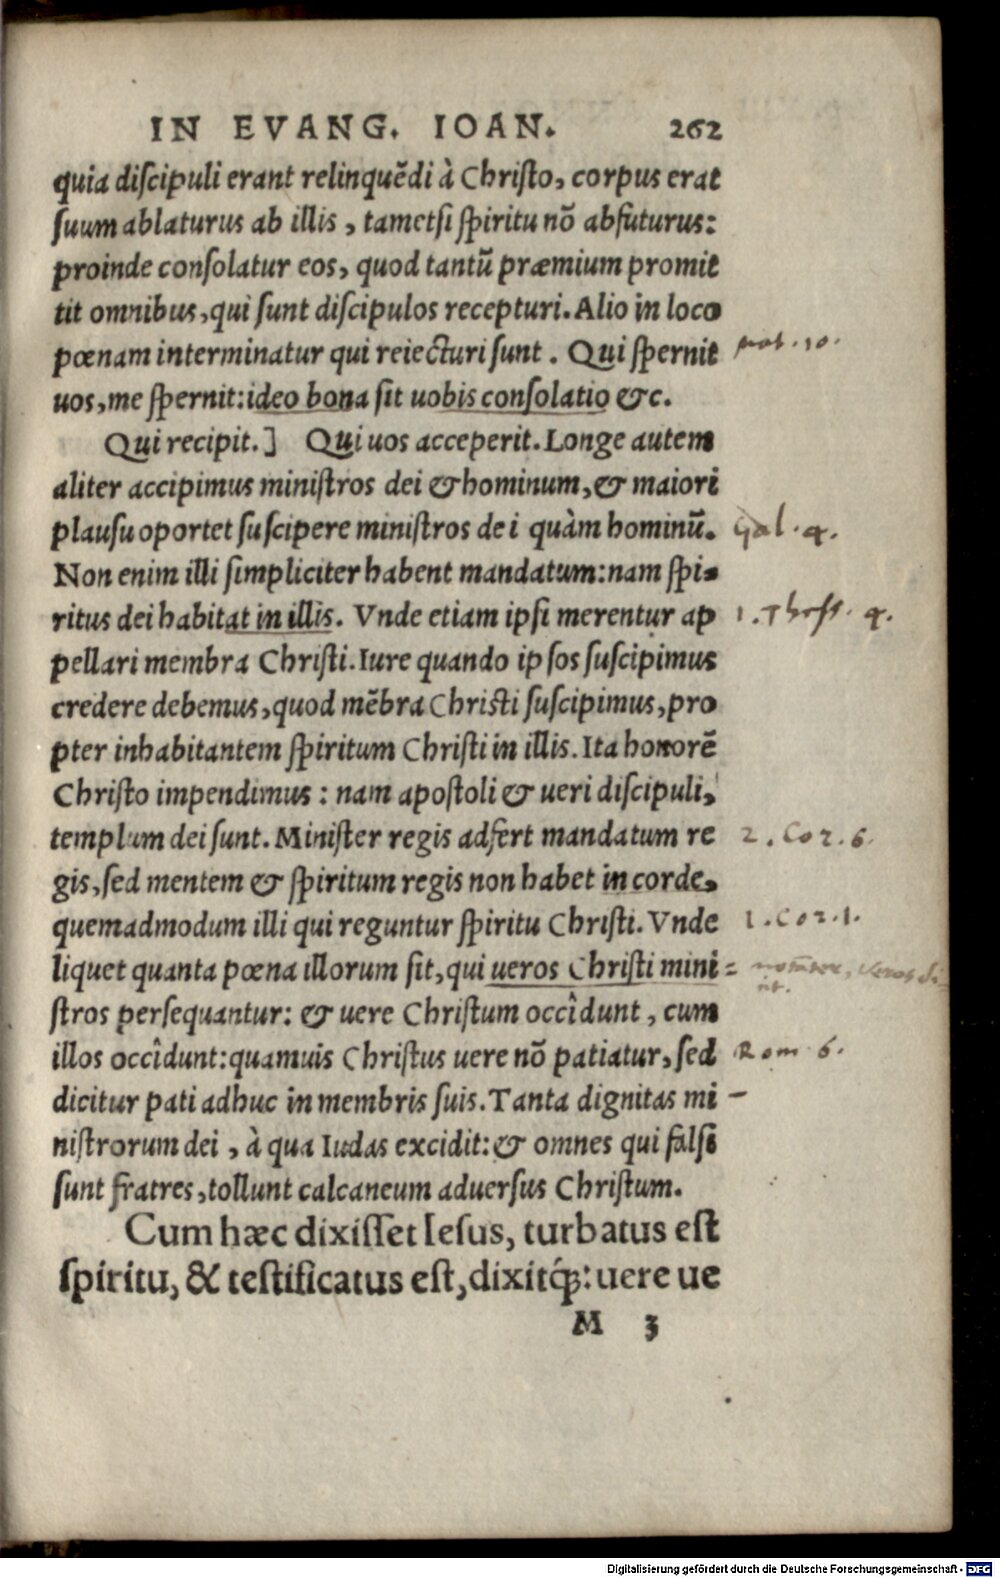 IN EVANG. IOAN. 262
quia diſcipuli erant relinquẽdi à Chriſto, corpus erat
ſuum ablaturus ab illis, tametſi ſpiritu nõ abfuturus:
proinde conſolatur eos, quod tantũ præmium promit
tit omnibus, qui ſunt diſcipulos recepturi. Alio in loco
pœnam interminatur qui reiecturi ſunt. Qui ſpernit
uos, me ſpernit: ideo bona ſit uobis conſolatio &c.
Qui recipit.] Qui uos acceperit. Longe autem
aliter accipimus miniſtros dei & hominum, & maiori
plauſu oportet ſuſcipere miniſtros dei quàm hominũ.
Gal. 4.
Non enim illi ſimpliciter habent mandatum: nam ſpi-
ritus dei habitat in illis. Vnde etiam ipſi merentur ap
1. Theſſ. 4.
pellari membra Chriſti. Iure quando ipſos ſuſcipimus
credere debemus, quod mẽbra Chriſti ſuſcipimus, pro
pter inhabitantem ſpiritum Chriſti in illis. Ita honorẽ
Chriſto impendimus: nam apoſtoli & ueri diſcipuli,
templum dei ſunt. Miniſter regis adfert mandatum re
2. Cor. 6.
gis, ſed mentem & ſpiritum regis non habet in corde,
quemadmodum illi qui reguntur ſpiritu Chriſti. Vnde
1. Cor. 1.
liquet quanta pœna illorum ſit, qui ueros Chriſti mini=
ſtros perſequantur: & uere Chriſtum occîdunt, cum
illos occîdunt: quamuis Chriſtus uere nõ patiatur, ſed
Rom 6.
dicitur pati adhuc in membris ſuis. Tanta dignitas mi-
niſtrorum dei, à qua Iudas excidit: & omnes qui falſi
ſunt fratres, tollunt calcaneum aduerſus Chriſtum.
Cum hæc dixiſſet Ieſus, turbatus eſt
ſpiritu, & teſtificatus eſt, dixitq́ꝫ: uere ue
M 3
Digitalisierung gefördert durch die Deutsche Forschungsgemeinschaft - DFG